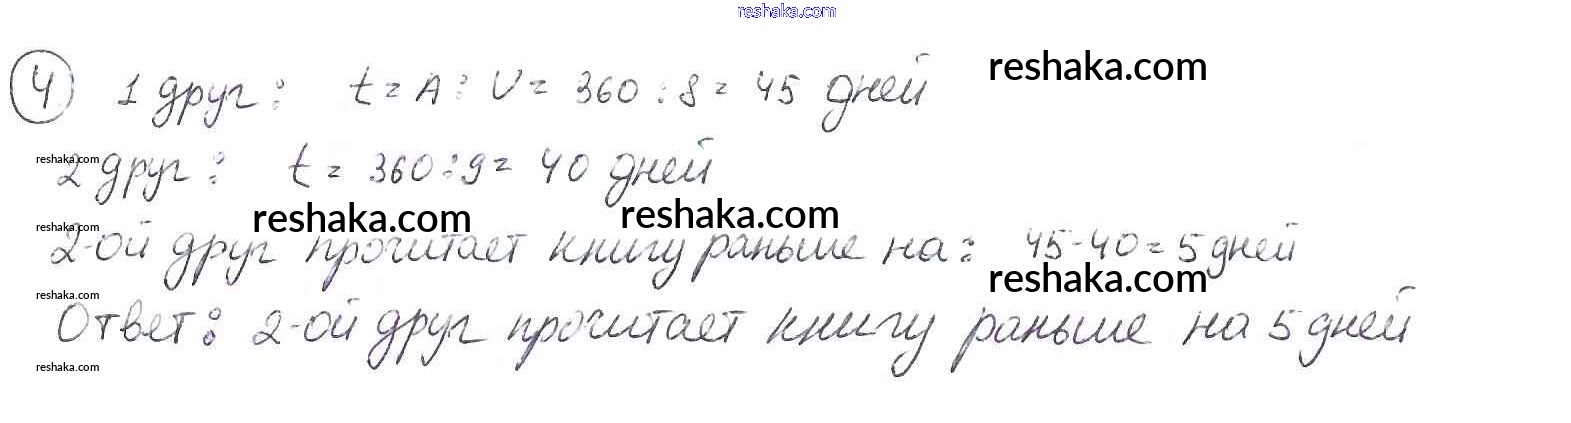 reshaka.com
④ 1 друг: t = A : V = 360 : 8 = 45 дней reshaka.com
reshaka.com
2 друг: t = 360 : 9 = 40 дней
reshaka.com reshaka.com
reshaka.com
2-ой друг прочитает книгу раньше на: 45-40=5 дней
reshaka.com
reshaka.com
Ответ: 2-ой друг прочитает книгу раньше на 5 дней
reshaka.com